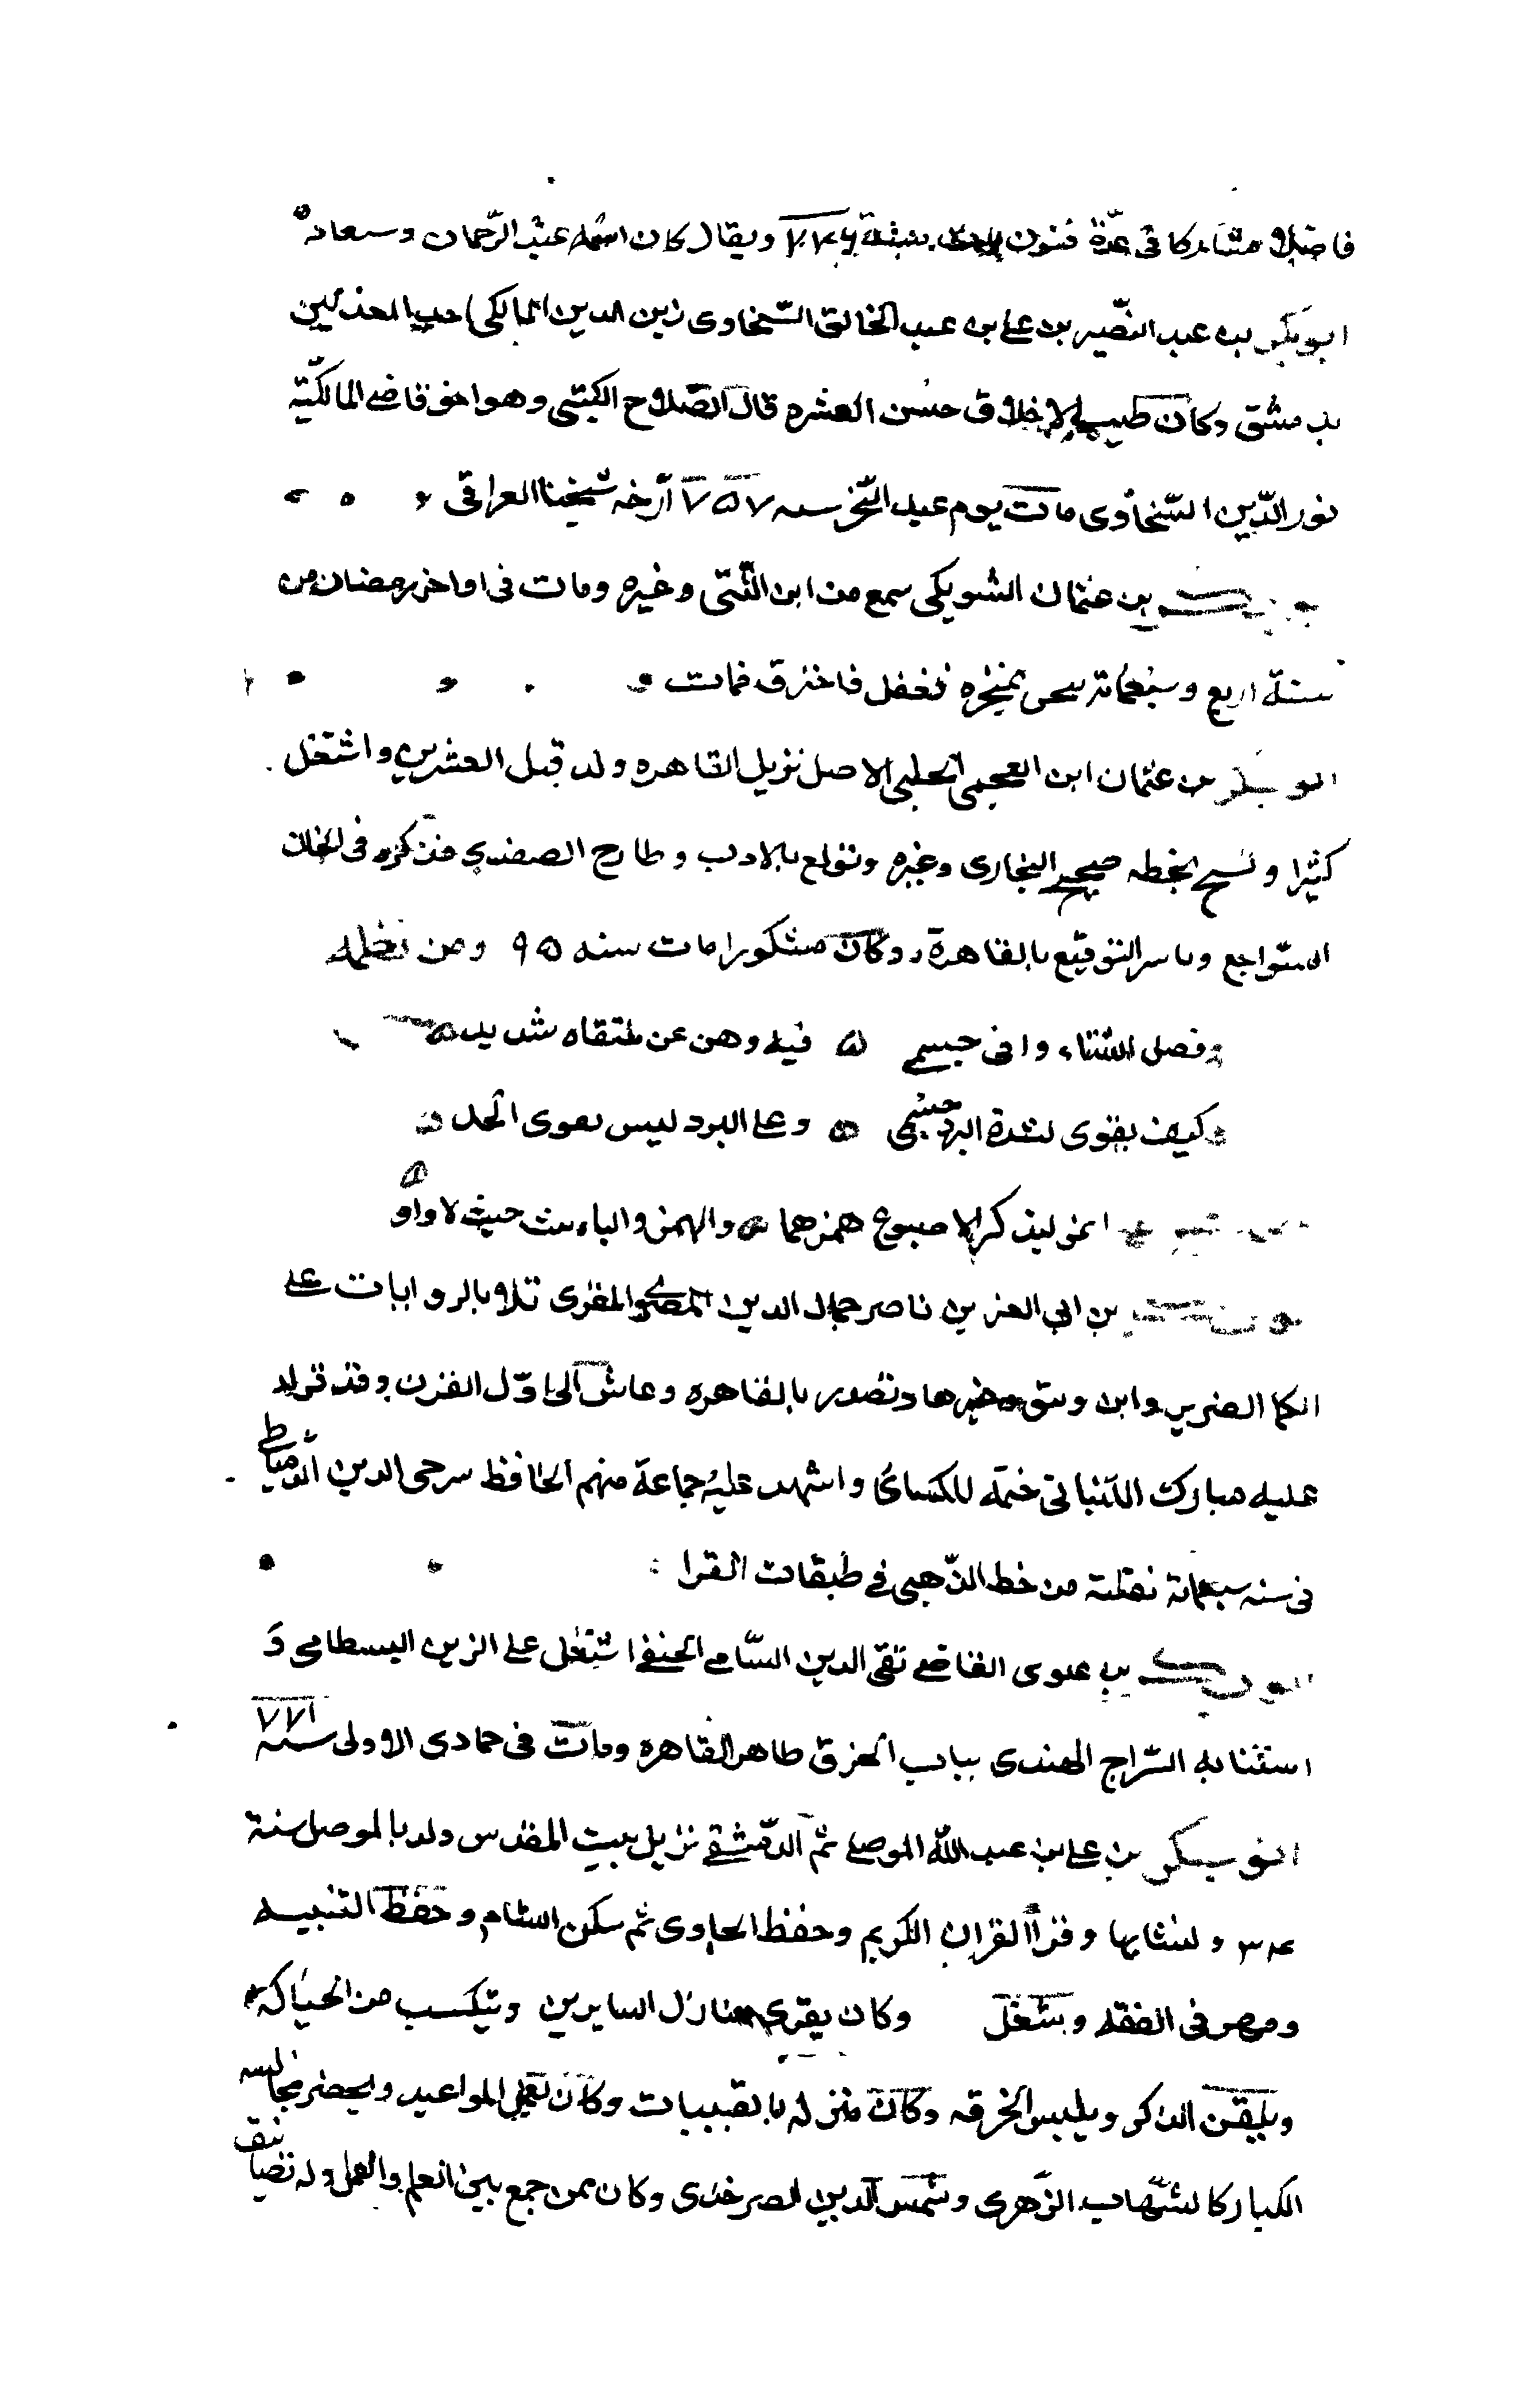 فاضلا مشاركا فى عدّة فنون سنة ٧٧٤ ويقال كان اسمه عبد الرّحمان وسعاده
ابو بكر بن عبد النصير بن على بن عبد الخالق السّخاوى زين الدين المالكى احد المعدلين
بدمشق وكان طيب الاخلاق حسن العشره قال الصّلاح الكتبى وهو اخو قاضى المالكيّة
نور الدّين السّخاوى مات يوم عيد النّحر سنه ٧٥٧ أرّخه شيخنا العراقى
بن عثمان الشوبكى سمع من ابن اللّتى وغيره ومات فى اواخر رمضان من
سنة اربع وسبعمائة بمنخره فغفل فاحترق فمات
ابو بكر بن عثمان ابن العجمى الحلبى الاصل نزيل القاهره ولد قبل العشرين واشتغل
كثيرا ونسخ بخطه صحيح البخارى وغيره وتولع بالادب وطارح الصفدى فذكره فى الحان
السّواجع وباشر التوقيع بالقاهرة وكان مشكورا مات سنه ٩٥ ومن نظمه
فصل الشتاء وافى جسمى فيه وهن عن ملتقاه شديد
كيف يقوى لشدة البرد جسمى وعلى البرد ليس يقوى الحديد
اكر الاصبوع همزهما والهمز والباء حيث لا واو
بن ابى العز بن ناصر جمال الدين المصرى المقرى تلا بالروايات على
الكمال الضرير وابن وغيرها وتصدر بالقاهره وعاش الى اوّل القرن وقد قرا
عليه مبارك ختمة للكسائى واشهد عليه جماعة منهم الحافظ الدين الدمياطى
فى سنه سبعمائة نقلته من خط الذّهبى فى طبقات القرا
ابو بكر بن علوى القاضى تقى الدين الشّامى الحنفى اشتغل على الزين البسطامى و
استنابه السّراج الهندى بباب الخرق ظاهر القاهره ومات فى جمادى الاولى سنة ٧٧١
ابو بكر بن على بن عبد اللّه الموصلى ثمّ الدّمشقى نزيل بيت المقدس ولد بالموصل سنة
٣٤ ونشا بها وقرأ القران الكريم وحفظ الحاوى ثم سكن الشام وحفظ التنبيه
ومهر فى الفقه وشغل وكان يقرى منازل السايرين ويتكسب من الحياكة
ويلقن الذكر ويلبس الخرقه وكان منزله بالقبيبات وكان يعمل المواعيد ويحضر مجالسه
الكبار كالشّهاب الزّهرى وشمس الدين الصرخدى وكان ممن جمع بين العلم والعمل وله تصانيف